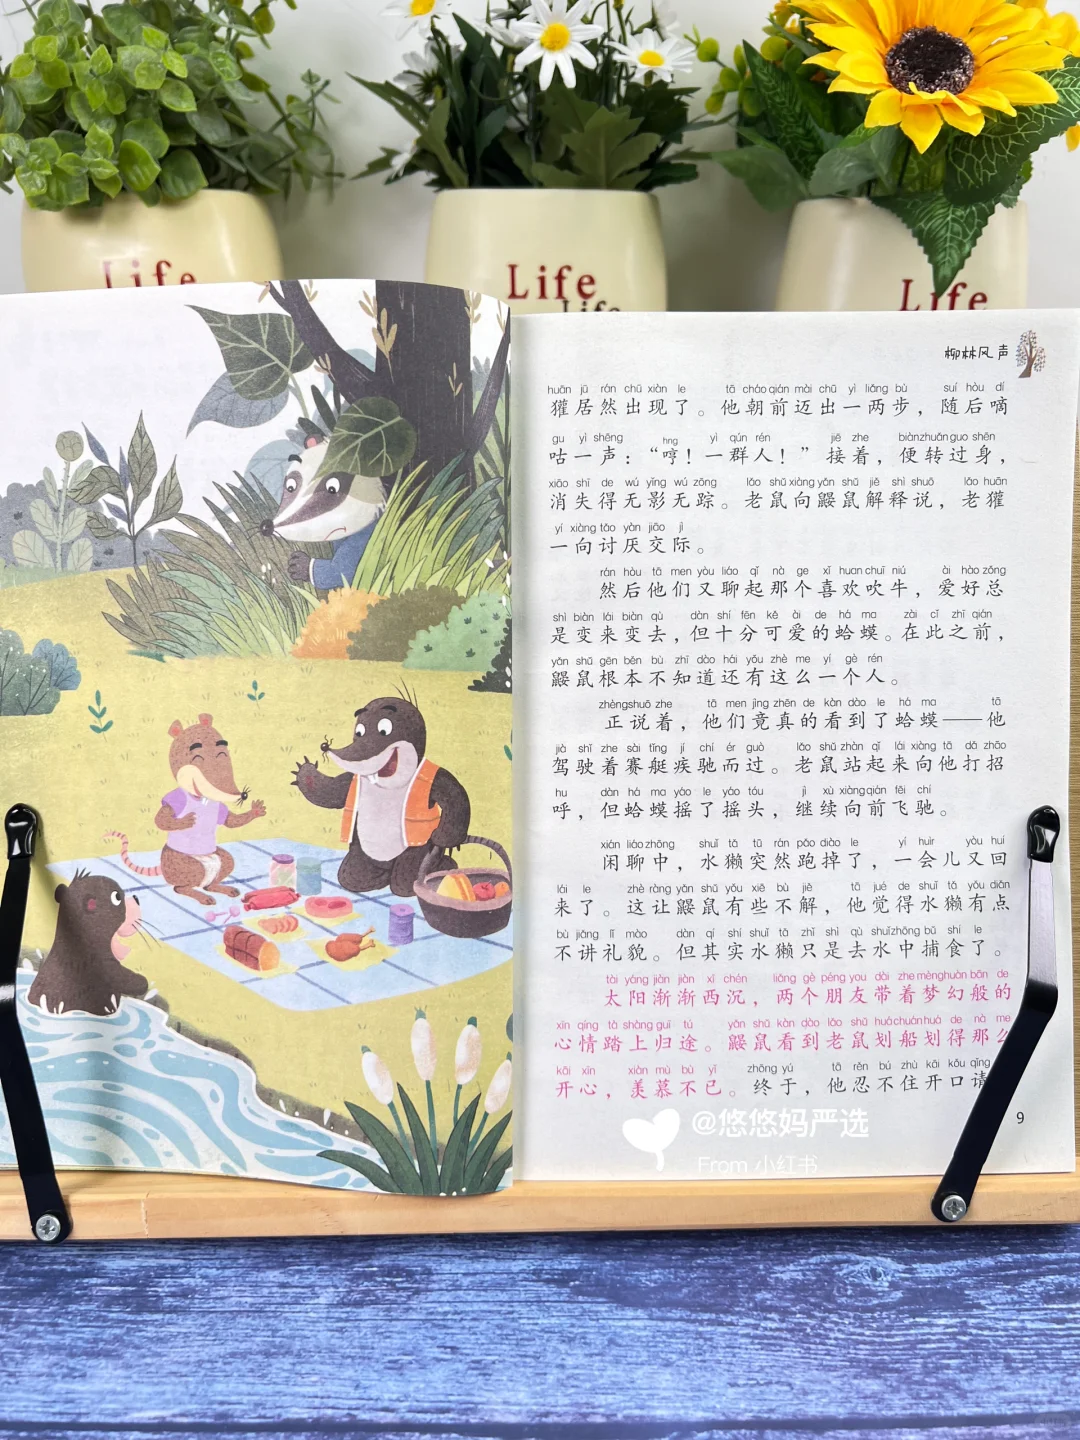 Life
Life
Life
Life
柳林风声
huān jū rán chū xiàn le tā cháo qián mài chū yì liǎng bù suí hòu dí
獾居然出现了。他朝前迈出一两步，随后嘀
gu yì shēng hng yì qún rén jiē zhe biàn zhuǎn guo shēn
咕一声：“哼！一群人！”接着，便转过身，
xiāo shī de wú yǐng wú zōng lǎo shǔ xiàng yǎn shǔ jiě shì shuō lǎo huān
消失得无影无踪。老鼠向鼹鼠解释说，老獾
yí xiàng tǎo yàn jiāo jì
一向讨厌交际。
rán hòu tā men yòu liáo qǐ nà ge xǐ huan chuī niú ài hào zǒng
然后他们又聊起那个喜欢吹牛，爱好总
shì biàn lái biàn qù dàn shí fēn kě ài de há ma zài cǐ zhī qián
是变来变去，但十分可爱的蛤蟆。在此之前，
yǎn shǔ gēn běn bù zhī dào hái yǒu zhè me yí gè rén
鼹鼠根本不知道还有这么一个人。
zhèng shuō zhe tā men jìng zhēn de kàn dào le há ma tā
正说着，他们竟真的看到了蛤蟆——他
jià shǐ zhe sài tǐng jí chí ér guò lǎo shǔ zhàn qǐ lái xiàng tā dǎ zhāo
驾驶着赛艇疾驰而过。老鼠站起来向他打招
hu dàn há ma yáo le yáo tóu jì xù xiàng qián fēi chí
呼，但蛤蟆摇了摇头，继续向前飞驰。
xián liáo zhōng shuǐ tǎ tū rán pǎo diào le yí huìr yòu huí
闲聊中，水獭突然跑掉了，一会儿又回
lái le zhè ràng yǎn shǔ yǒu xiē bù jiě tā jué de shuǐ tǎ yǒu diǎn
来了。这让鼹鼠有些不解，他觉得水獭有点
bù jiǎng lǐ mào dàn qí shí shuǐ tǎ zhǐ shì qù shuǐ zhōng bǔ shí le
不讲礼貌。但其实水獭只是去水中捕食了。
tài yáng jiàn jiàn xī chén liǎng gè péng you dài zhe mèng huàn bān de
太阳渐渐西沉，两个朋友带着梦幻般的
xīn qíng tà shàng guī tú yǎn shǔ kàn dào lǎo shǔ huá chuán huá de nà me
心情踏上归途。鼹鼠看到老鼠划船划得那么
kāi xīn xiàn mù bù yǐ zhōng yú tā rěn bú zhù kāi kǒu qǐng
开心，羡慕不已。终于，他忍不住开口请
9
@悠悠妈严选
From 小红书